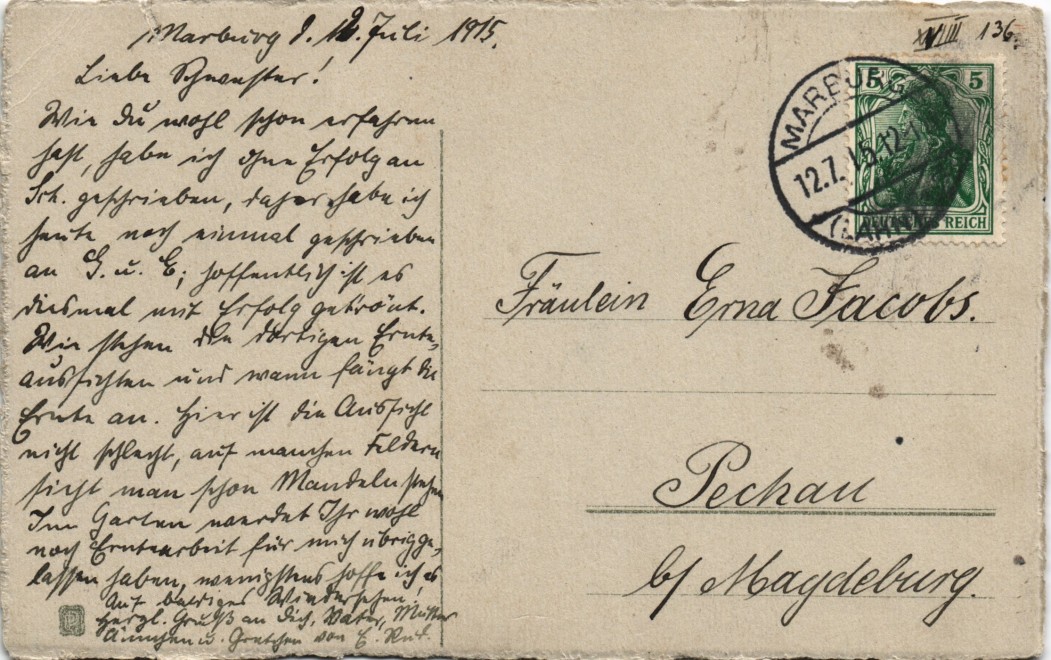 Marburg d. 12. Juli 1915.
Liebe Schwester!
Wie du wohl schon erfahren
hast, habe ich ohne Erfolg an
Sch. geschrieben, daher habe ich
heute noch einmal geschrieben
an G. u. E; hoffentlich ist es
diesmal mit Erfolg gekrönt.
Wie stehen die dortigen Ernte-
aussichten und wann fängt die
Ernte an. Hier ist die Aussicht
nicht schlecht, auf manchen Feldern
sieht man schon Mandeln stehen
Im Garten werdet Ihr wohl
noch Erntearbeit für mich übrigge-
lassen haben, wenigstens hoffe ich es
Auf baldiges Wiedersehen!
Herzl. Gruß an dich, Vater, Mutter
Ännchen u. Gretchen von E.
XVIII 136.
5 5
DEUTSCHES REICH
MARBURG
12.7.15.12-1
(LAHN)
Fräulein Erna Jacobs.
Pechau
b/ Magdeburg.